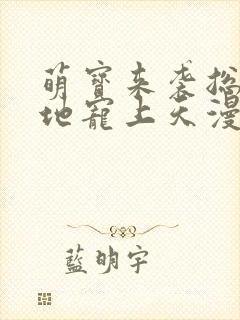 萌寶来袭摠
地寵上天漫
藍明宇